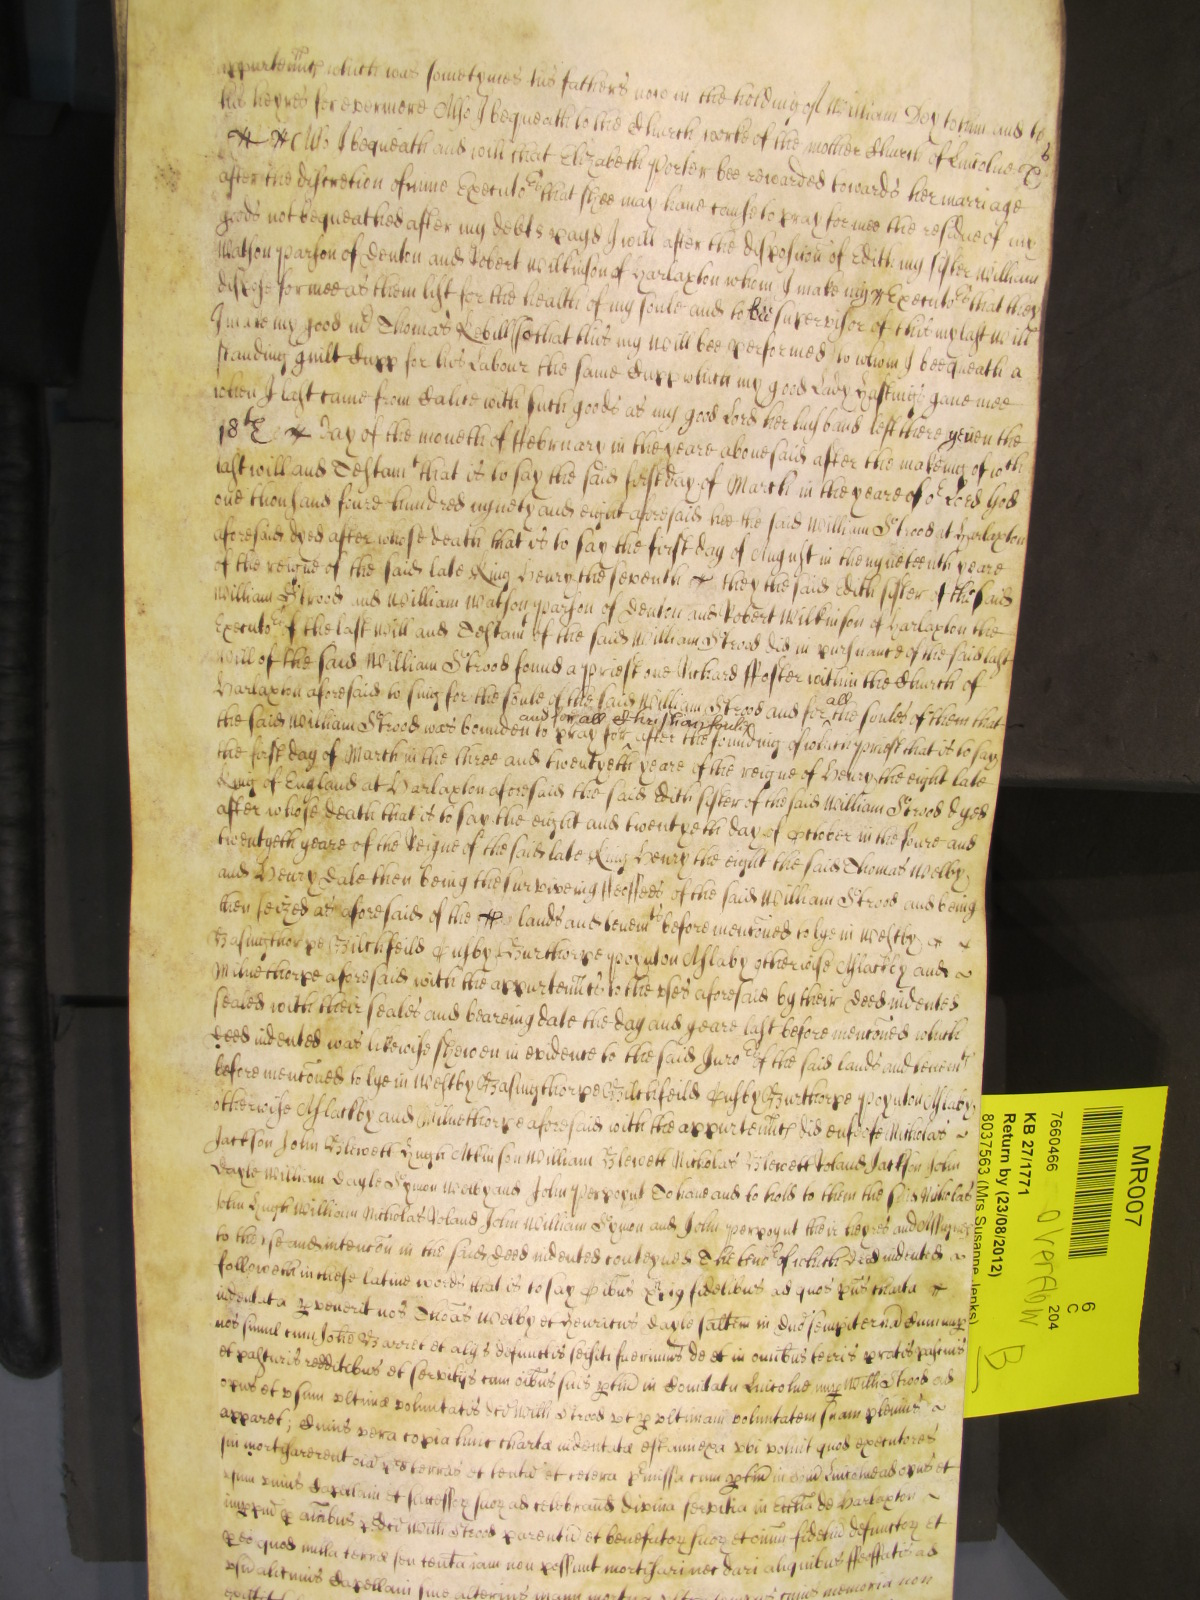 appurtennces which was sometymes his fathers now in the holding of William Dey to him and to
his heyres for evermore Also I bequeath to the Church worke of the mother Church of Lincolne
Also I bequeath and will that Elizabeth Porter bee rewarded towards her marriage
after the discretion of mine Executors that shee may have cause to pray for mee the residue of my
goods not bequeathed after my debts payd I will after the disposicon of Edith my sister William
Watson parson of Denton and Robert Wilkinson of Harlaxton whom I make my Executors that they
dispose for mee as them list for the health of my soule and to bee supervisor of this my last will
I make my good Thomas so that this my will bee performed to whom I beequeath a
standing guilt Cupp for his Labour the same Cupp which my good Lady Hastings gave mee
when I last came from Calice with such goods as my good Lord her husband left there yeven the
18th day of the moneth of February in the yeare abovesaid after the makeing of wch
last will and Testamt that is to say the said first day of March in the yeare of or Lord God
one thousand foure hundred nynety and eight aforesaid hee the said William Strood at Harlaxton
aforesaid dyed after whose death that is to say the first day of August in the nyneteenth yeare
of the reigne of the said late King Henry the seventh they the said Edith sister of the said
William Strood and William Watson parson of Denton and Robert Wilkinson of Harlaxton the
Executors of the last will and Testamt of the said William Strood did in pursuance of the said last
will of the said William Strood found a priest one Richard ffoster within the Church of
Harlaxton aforesaid to sing for the soule of the said William Strood and for all the soules of them that
and for all Christian soules
the said William Strood was bounden to pray for after the founding of which priest that is to say
the first day of March in the three and twentyeth yeare of the reigne of Henry the eight late
King of England at Harlaxton aforesaid the said Edith sister of the said William Strood dyed
after whose death that is to say the eight and twentyeth day of October in the foure and
twentyeth yeare of the Reigne of the said late King Henry the eight the said Thomas Welby
and Henry Dale then being the surviveing ffeoffees of the said William Strood and being
then seized as aforesaid of the lands and tenemts before menconed to lye in Westby
Basingthorpe Bitchfeild Ousby Gurthorpe Poynton Aslaby otherwise Aslackby and
Milnethorpe aforesaid with the appurtennces to the uses aforesaid by their deed indented
sealed with their seales and beareing date the day and yeare last before menconed which
deed indented was likewise shewen in evidence to the said Jurors of the said lands and tenemts
before menconed to lye in Westby Basingthorpe Bitchfeild Ousby Gurthorpe Poynton Aslaby
otherwise Aslackby and Milnethorpe aforesaid with the appurtennces did enfeoffe Nicholas
Jackson John Blewett Hugh Attkinson William Blewett Nicholas Blewett Roland Jackson John
Dayle William Dayle Symon Welby and John Perpoynt To have and to hold to them the said Nicholas
John Hugh William Nicholas Roland John William Symon and John Perpoynt their heyres and Assignes
to the use and intencon in the said deed indented conteyned The tenor of which deed indented
followeth in these latine words that is to say Omibus Xpi fidelibus ad quos pns charta
indentata pvenerit nos Thomas Welby et Henricus Dayle saltem in Dno sempiternam Cum nup
nos simul cum Johe Barret et alijs defunctis seisiti fuerimus de et in omibus terris pratis pascuis
et pasturis redditibus et servitijs cum oibus suis ptin in Comitatu Lincolne nup Willi Strood ad
opus et usum ultimae voluntatis dci Willi Strood ut p ultimam voluntatem suam plenius
apparet; Cuius vera copia huic chartae indentatae est annexa ubi voluit quod executores
sui mortizarent oia terras et tenta et cetera pmissa cum ptin in Com Lincolne ad opus et
usum unius Capellani et successor suor ad celebrand divina servitia in Ecclia de Harlaxton
impptm p aiabus Willi Strood parentu et benefactor suor et omniu fideliu defunctor et
eo quod nulla terrae seu tenta iam non possunt mortizari nec dari aliquibus ffeoffatis ad
usu alicuius Capellani sine alterius manu cuius memoria non
MR007
6
C
204
7660466
overflow
KB 27/1771
Return by (23/08/2012)
8037563 (Mrs Susanne Jenks)
B